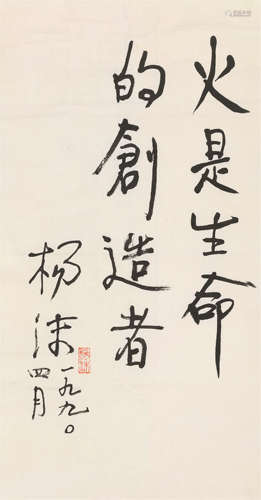 火是生命
的創造者
杨沫
一九九〇
四月